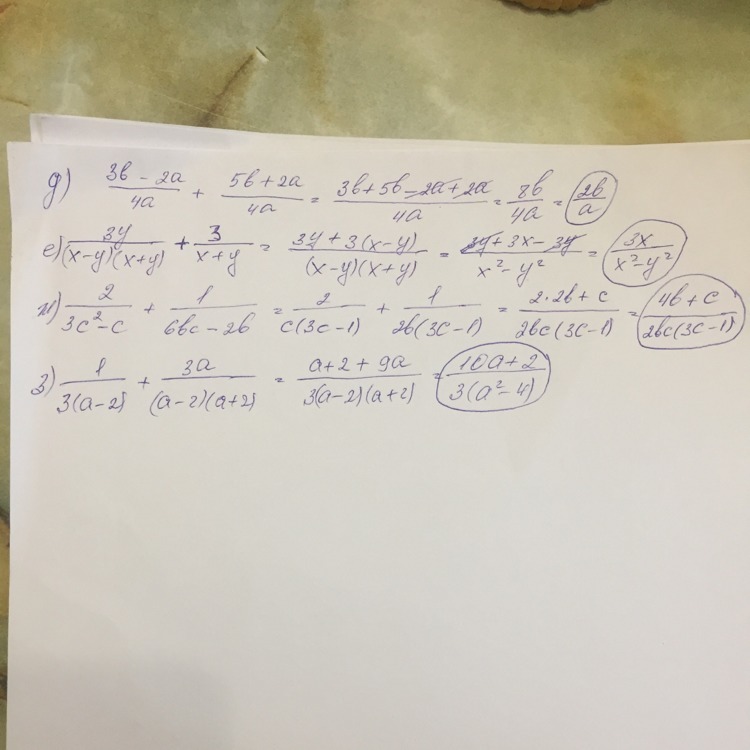 д) (3b - 2a)/(4a) + (5b + 2a)/(4a) = (3b + 5b - 2a + 2a)/(4a) = 8b/(4a) = 2b/a
е) 3y/((x-y)(x+y)) + 3/(x+y) = (3y + 3(x-y))/((x-y)(x+y)) = (3y + 3x - 3y)/(x² - y²) = 3x/(x² - y²)
ж) 2/(3c² - c) + 1/(6bc - 2b) = 2/(c(3c-1)) + 1/(2b(3c-1)) = (2·2b + c)/(2bc(3c-1)) = (4b + c)/(2bc(3c-1))
з) 1/(3(a-2)) + 3a/((a-2)(a+2)) = (a + 2 + 9a)/(3(a-2)(a+2)) = (10a + 2)/(3(a² - 4))